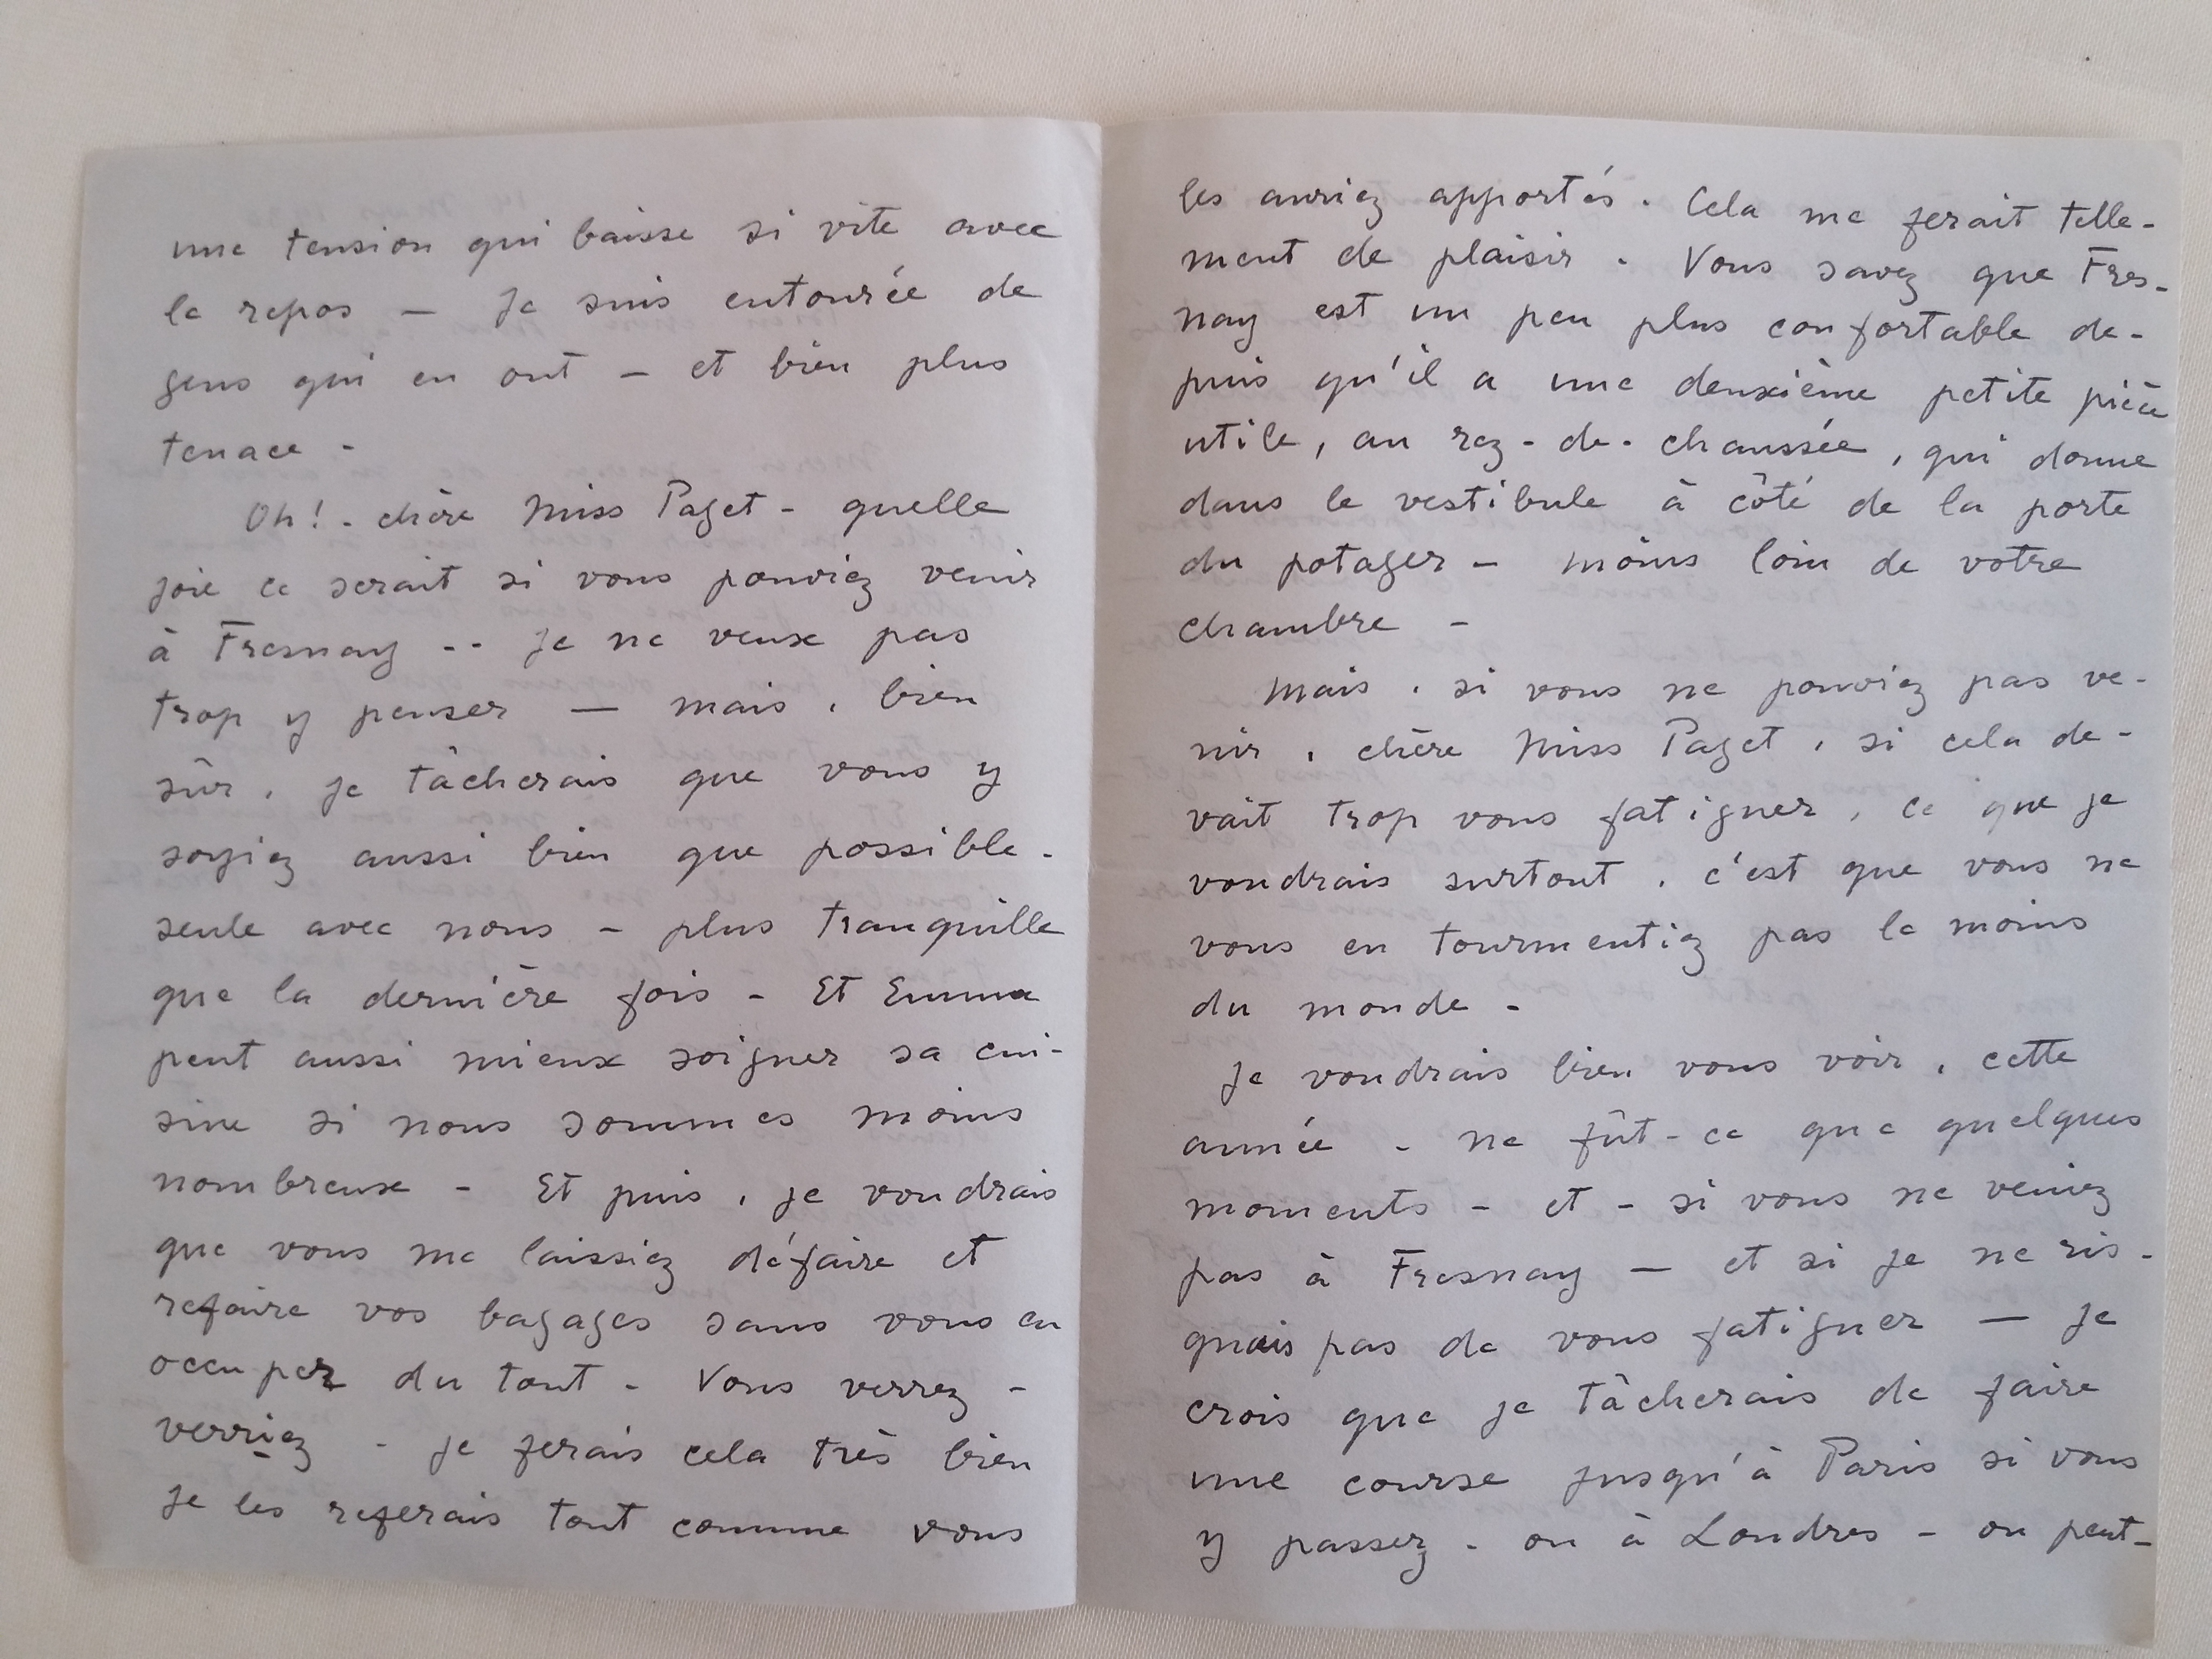 une tension qui baisse si vite avec
le repos — Je suis entourée de
gens qui en ont — et bien plus
tenace -
Oh! - chère Miss Paget - quelle
joie ce serait si vous pouviez venir
à Fresnay -- Je ne veux pas
trop y penser — mais, bien
sûr, je tâcherais que vous y
soyiez aussi bien que possible -
seule avec nous - plus tranquille
que la dernière fois - Et Emma
peut aussi mieux soigner sa cui-
sine si nous sommes moins
nombreux - Et puis, je voudrais
que vous me laissiez défaire et
refaire vos bagages sans vous en
occuper du tout - Vous verrez -
verriez - je ferais cela très bien
Je les referais tout comme vous
les auriez apportés. Cela me ferait telle-
ment de plaisir. Vous savez que Fres-
nay est un peu plus confortable de-
puis qu'il a une deuxième petite pièce
utile, au rez-de-chaussée, qui donne
dans le vestibule à côté de la porte
du potager - moins loin de votre
chambre -
Mais, si vous ne pouviez pas ve-
nir, chère Miss Paget, si cela de-
vait trop vous fatiguer, ce que je
voudrais surtout, c'est que vous ne
vous en tourmentiez pas le moins
du monde -
Je voudrais bien vous voir, cette
année - ne fût-ce que quelques
moments - et - si vous ne veniez
pas à Fresnay — et si je ne ris-
quais pas de vous fatiguer — Je
crois que je tâcherais de faire
une course jusqu'à Paris si vous
y passez - ou à Londres - ou peut-